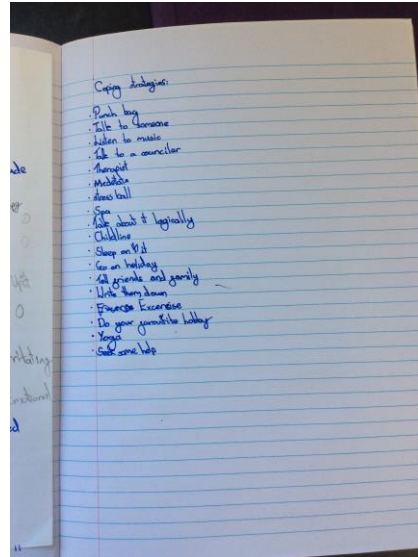 Coping strategies:
· Punch bag
· Talk to someone
· Listen to music
· Talk to a councilar
· Therapist
· Meditate
· stress ball
· Spa
· Talk about it logically
· Childline
· Sleep on it
· Go on holiday
· Tell friends and family
· Write them down
· Excersise
· Do your favourite hobby
· Yoga
· Seek some help